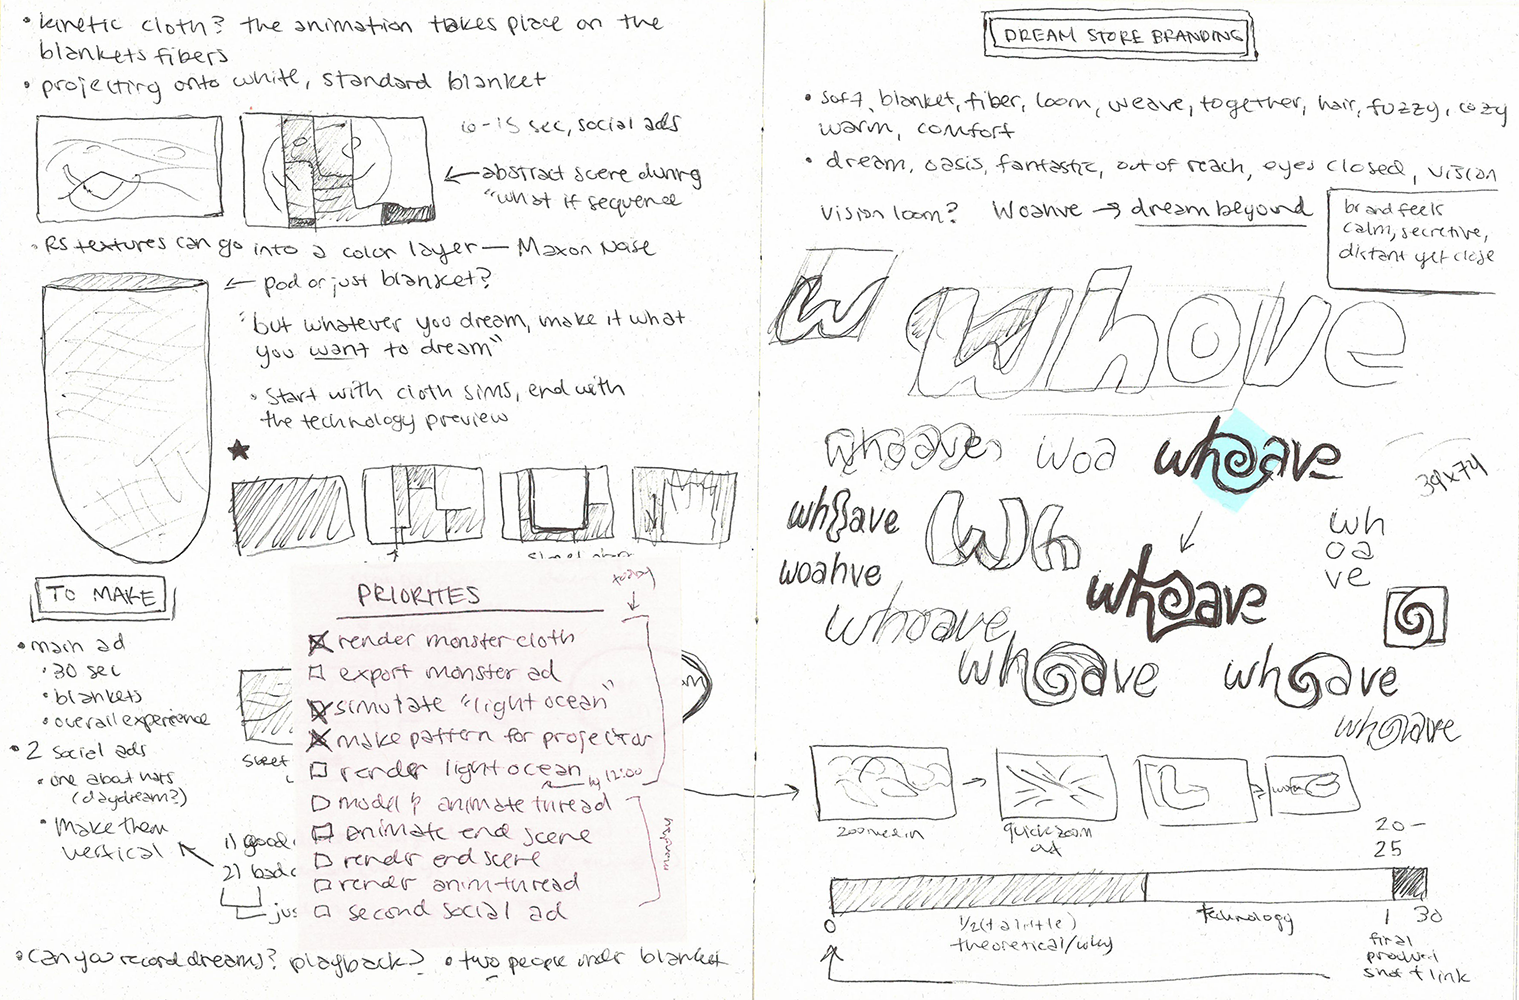 • kinetic cloth? the animation takes place on the
blankets fibers
• projecting onto white, standard blanket
10-15 sec, social ads
abstract scene during
"what if sequence
• RS textures can go into a color layer — Maxon Noise
pod or just blanket?
"but whatever you dream, make it what
you want to dream"
• Start with cloth sims, end with
the technology preview
TO MAKE
• main ad
• 30 sec
• blankets
• overall experience
• 2 social ads
• one about hats
(daydream?)
• Make them
vertical
1) good
2) bad
jus
PRIORITES
today
render monster cloth
export monster ad
simutate "light ocean"
make pattern for projector
render light ocean
by 12:00
model & animate thread
animate end scene
render end scene
render anim-thread
second social ad
monday
• can you record dreams? playback? • two people under blanket
DREAM STORE BRANDING
• soft, blanket, fiber, loom, weave, together, hair, fuzzy, cozy
warm, comfort
• dream, oasis, fantastic, out of reach, eyes closed, vision
vision loom? Woahve → dream beyond
brand feels
calm, secretive,
distant yet close
W
whove
whoave
woa
whoave
39x74
whoave
Wh
wh
oa
ve
woahve
whoave
whoave
whoave
whoave
whoave
zoomed in
quick zoom
out
20-
25
0
1/2 (+ a little)
theoretical/why
technology
1
30
final
product
shot + link